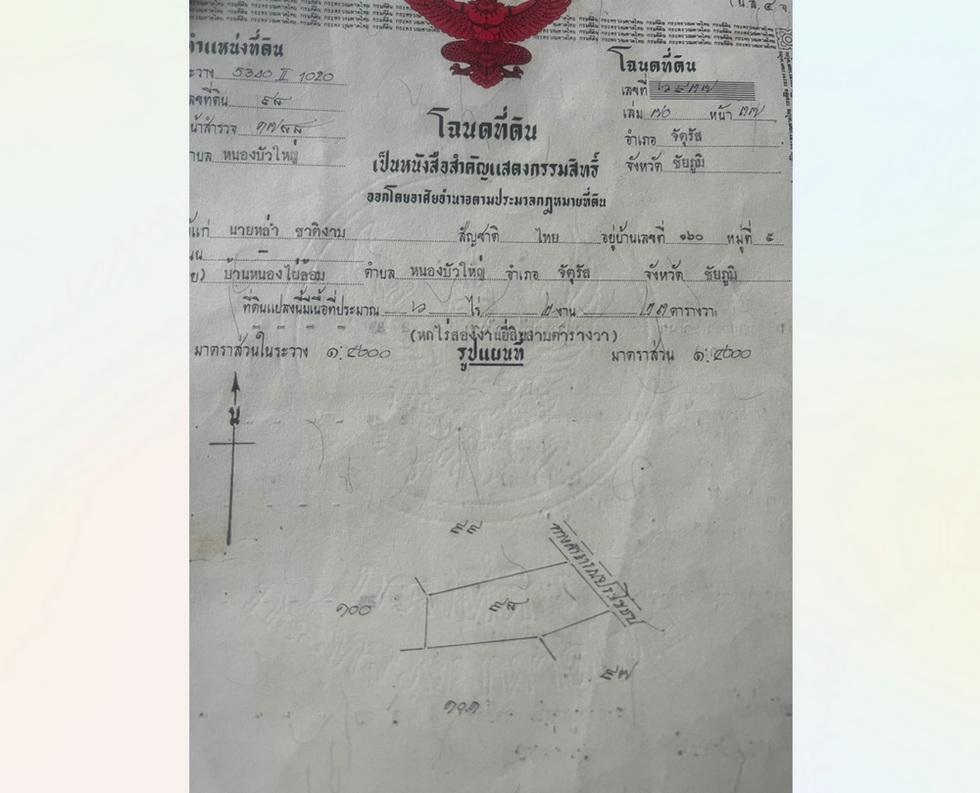 (น.ส. ๔ จ.
ตำแหน่งที่ดิน
ระวาง 5340 II 1020
เลขที่ดิน ๙๘
หน้าสำรวจ ๑๗๙๘
ตำบล หนองบัวใหญ่
โฉนดที่ดิน
เลขที่
เล่ม ๗๐ หน้า ๓๗
อำเภอ จัตุรัส
จังหวัด ชัยภูมิ
โฉนดที่ดิน
เป็นหนังสือสำคัญแสดงกรรมสิทธิ์
ออกโดยอาศัยอำนาจตามประมวลกฎหมายที่ดิน
ให้แก่ นายหล่ำ ชาติงาม สัญชาติ ไทย อยู่บ้านเลขที่ ๑๖๐ หมู่ที่ ๙
บ้านหนองไผ่ล้อม ตำบล หนองบัวใหญ่ อำเภอ จัตุรัส จังหวัด ชัยภูมิ
ที่ดินแปลงนี้มีเนื้อที่ประมาณ ๖ ไร่ ๒ งาน ๒๓ ตารางวา
(หกไร่สองงานยี่สิบสามตารางวา)
มาตราส่วนในระวาง ๑:๔๐๐๐ รูปแผนที่ มาตราส่วน ๑:๔๐๐๐
น
ทางสาธารณประโยชน์
๑๐๐
๙๘
๙๗
๑๐๑